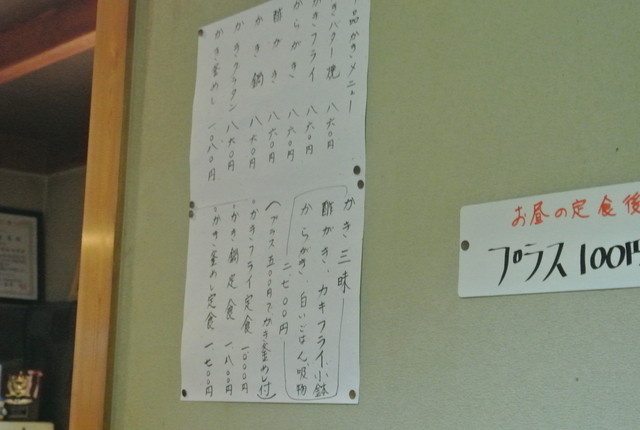 品かきメニュー
きバター焼 八六〇円
かきフライ 八六〇円
からがき 八六〇円
酢がき 八六〇円
かき鍋 八六〇円
かきグラタン 八六〇円
かき釜めし 一〇八〇円
かき三昧
酢がき、カキフライ、小鉢
からがき、白いごはん、吸物
二七〇〇円
(プラス五〇〇円でかき釜めし付)
・かきフライ定食 一〇〇〇円
・かき鍋定食 一八〇〇円
・かき釜めし定食 一七〇〇円
お昼の定食後
プラス100円